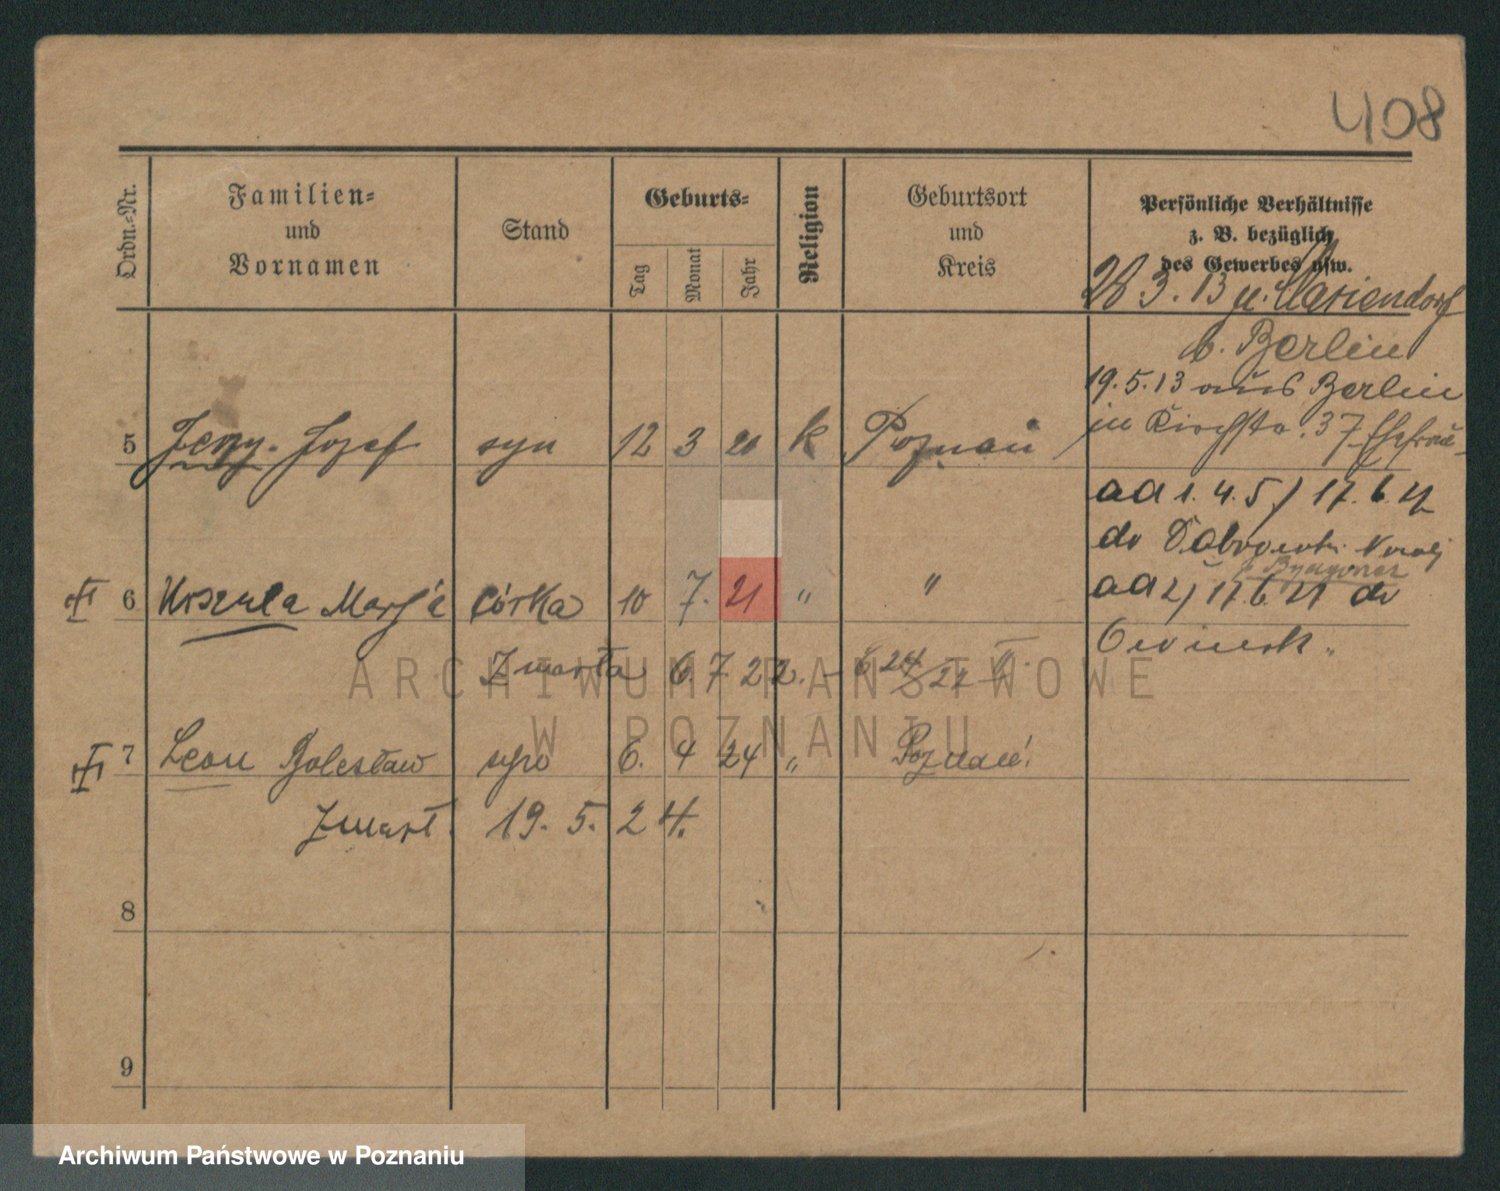 408
Ordn.-Nr.
Familien-
und
Vornamen
Stand
Geburts-
Tag
Monat
Jahr
Religion
Geburtsort
und
Kreis
Persönliche Verhältnisse
z. B. bezüglich
des Gewerbes usw.
28 3. 13 n. Mariendorf
b. Berlin
19. 5. 13 aus Berlin
in Kirchstr. 37 Ehefrau
5 Jerzy Jozef syn 12 3 20 k Poznań
ad 1. 4. 5) 17. 6. 21
do
Bydgoszcz
6 Urszula Marja córka 10 7. 21 " "
ad 2) 17. 6. 21 do
Owinsk.
Zmarła 6. 7. 22.
ARCHIWUM PAŃSTWOWE
W POZNANIU
7 Leon Bolesław syn 6. 4 24 " Poznań
Zmarł. 19. 5. 24.
8
9
Archiwum Państwowe w Poznaniu